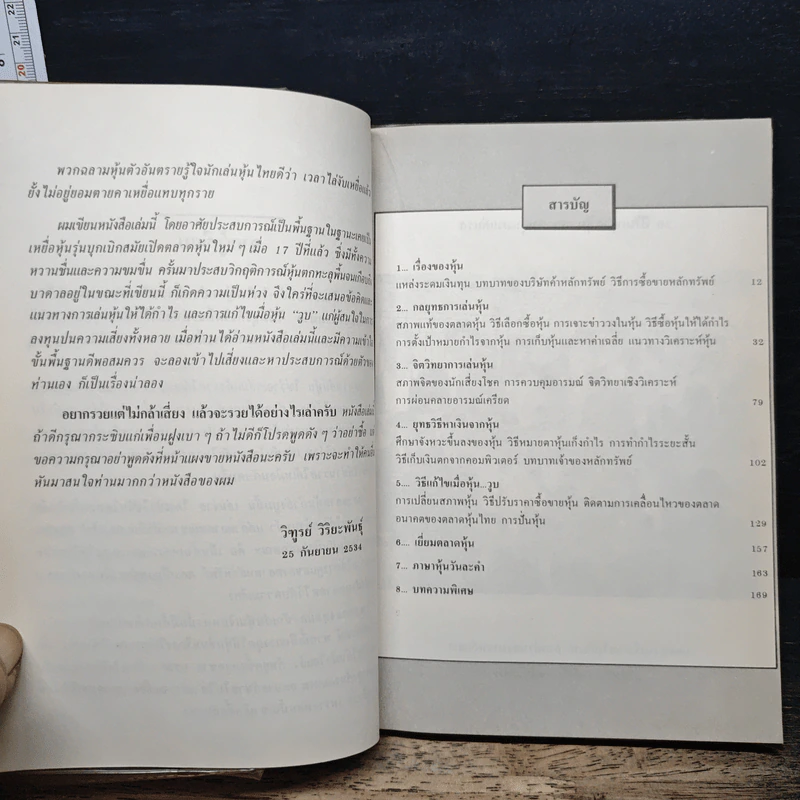 22
21
20
พวกฉลามหุ้นตัวอันตรายรู้ใจนักเล่นหุ้นไทยดีว่า เวลาไล่งับเหยื่อแล้ว
ยั้งไม่อยู่ยอมตายคาเหยื่อแทบทุกราย
ผมเขียนหนังสือเล่มนี้ โดยอาศัยประสบการณ์เป็นพื้นฐานในฐานะเคยเป็น
เหยื่อหุ้นรุ่นบุกเบิกสมัยเปิดตลาดหุ้นใหม่ ๆ เมื่อ 17 ปีที่แล้ว ซึ่งมีทั้งความ
หวานชื่นและความขมขื่น ครั้นมาประสบวิกฤติการณ์หุ้นตกทะลุพื้นจนเกือบถึง
บาดาลอยู่ในขณะที่เขียนนี้ ก็เกิดความเป็นห่วง จึงใคร่ที่จะเสนอข้อคิดและ
แนวทางการเล่นหุ้นให้ได้กำไร และการแก้ไขเมื่อหุ้น “วูบ” แก่ผู้สนใจในการ
ลงทุนปนความเสี่ยงทั้งหลาย เมื่อท่านได้อ่านหนังสือเล่มนี้และมีความเข้าใจ
ขั้นพื้นฐานดีพอสมควร จะลองเข้าไปเสี่ยงและหาประสบการณ์ด้วยตัวของ
ท่านเอง ก็เป็นเรื่องน่าลอง
อยากรวยแต่ไม่กล้าเสี่ยง แล้วจะรวยได้อย่างไรเล่าครับ หนังสือเล่มนี้
ถ้าดีกรุณากระซิบแก่เพื่อนฝูงเบา ๆ ถ้าไม่ดีก็โปรดพูดดัง ๆ ว่าอย่าซื้อ
ขอความกรุณาอย่าพูดดังที่หน้าแผงขายหนังสือนะครับ เพราะจะทำให้คนอื่น
หันมาสนใจท่านมากกว่าหนังสือของผม
วิฑูรย์ วิริยะพันธุ์
25 กันยายน 2534
สารบัญ
1... เรื่องของหุ้น
แหล่งระดมเงินทุน บทบาทของบริษัทค้าหลักทรัพย์ วิธีการซื้อขายหลักทรัพย์ 12
2... กลยุทธการเล่นหุ้น
สภาพแท้ของตลาดหุ้น วิธีเลือกซื้อหุ้น การเจาะข่าววงในหุ้น วิธีซื้อหุ้นให้ได้กำไร
การตั้งเป้าหมายกำไรจากหุ้น การเก็บหุ้นและหาค่าเฉลี่ย แนวทางวิเคราะห์หุ้น 32
3... จิตวิทยาการเล่นหุ้น
สภาพจิตของนักเสี่ยงโชค การควบคุมอารมณ์ จิตวิทยาเชิงวิเคราะห์
การผ่อนคลายอารมณ์เครียด 79
4... ยุทธวิธีหาเงินจากหุ้น
ศึกษาจังหวะขึ้นลงของหุ้น วิธีหมายตาหุ้นเก็งกำไร การทำกำไรระยะสั้น
วิธีเก็บเงินตกจากคอมพิวเตอร์ บทบาทเจ้าของหลักทรัพย์ 102
5.... วิธีแก้ไขเมื่อหุ้น...วูบ
การเปลี่ยนสภาพหุ้น วิธีปรับราคาซื้อขายหุ้น ติดตามการเคลื่อนไหวของตลาด
อนาคตของตลาดหุ้นไทย การปั่นหุ้น 129
6.... เยี่ยมตลาดหุ้น 157
7... ภาษาหุ้นวันละคำ 163
8... บทความพิเศษ 169